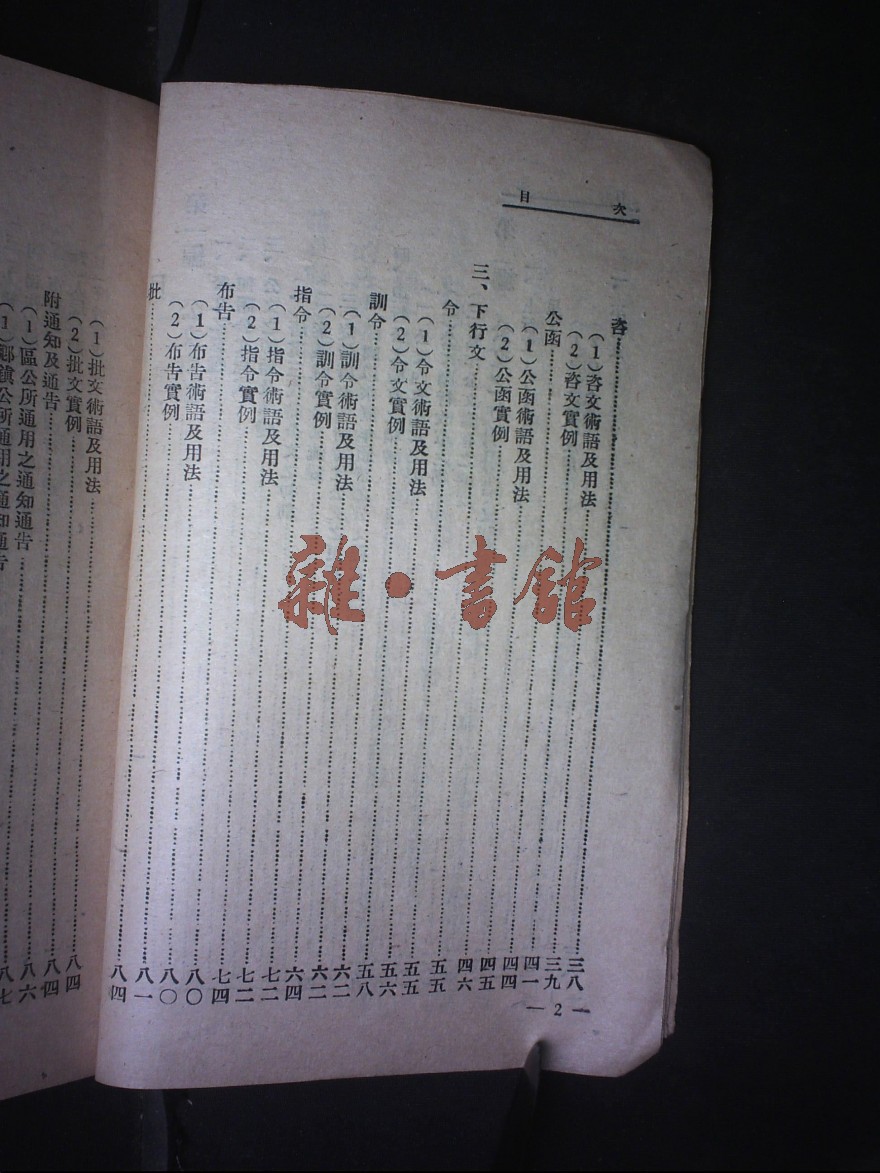 目次
咨 三八
(1)咨文術語及用法 三九
(2)咨文實例 四一
公函 四四
(1)公函術語及用法 四五
(2)公函實例 四六
三、下行文 五五
令 五五
(1)令文術語及用法 五六
(2)令文實例 五八
訓令 六二
(1)訓令術語及用法 六二
(2)訓令實例 六四
指令 七二
(1)指令術語及用法 七二
(2)指令實例 七四
布告 八〇
(1)布告術語及用法 八〇
(2)布告實例 八一
批 八四
— 2 —
(1)批文術語及用法 八四
(2)批文實例 八四
附通知及通告 八六
(1)區公所通用之通知通告 八七
鄉鎮公所通用之通知通告
雜·書館